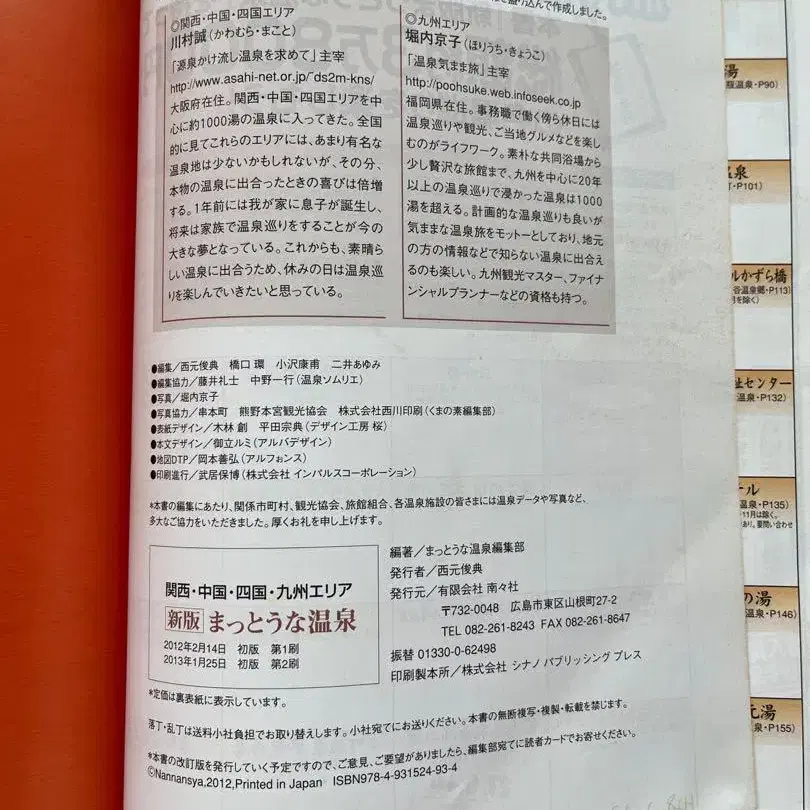 り込んで作成しました。
◎関西・中国・四国エリア
川村誠(かわむら・まこと)
「源泉かけ流し温泉を求めて」主宰
http://www.asahi-net.or.jp/~ds2m-kns/
大阪府在住。関西・中国・四国エリアを中
心に約1000湯の温泉に入ってきた。全国
的に見てこれらのエリアには、あまり有名な
温泉地は少ないかもしれないが、その分、
本物の温泉に出合ったときの喜びは倍増
する。1年前には我が家に息子が誕生し、
将来は家族で温泉巡りをすることが今の
大きな夢となっている。これからも、素晴ら
しい温泉に出合うため、休みの日は温泉巡
りを楽しんでいきたいと思っている。
◎九州エリア
堀内京子(ほりうち・きょうこ)
「温泉気まま旅」主宰
http://poohsuke.web.infoseek.co.jp
福岡県在住。事務職で働く傍ら休日には
温泉巡りや観光、ご当地グルメなどを楽し
むのがライフワーク。素朴な共同浴場から
少し贅沢な旅館まで、九州を中心に20年
以上の温泉巡りで浸かった温泉は1000
湯を超える。計画的な温泉巡りも良いが
気ままな温泉旅をモットーとしており、地元
の方の情報などで知らない温泉に出合え
るのも楽しい。九州観光マスター、ファイナ
ンシャルプランナーなどの資格も持つ。
●編集/西元俊典 橋口 環 小沢康甫 二井あゆみ
●編集協力/藤井礼士 中野一行(温泉ソムリエ)
●写真/堀内京子
●写真協力/串本町 熊野本宮観光協会 株式会社西川印刷(くまの素編集部)
●表紙デザイン/木林 創 平田宗典(デザイン工房 桜)
●本文デザイン/御立ルミ(アルバデザイン)
●地図DTP/岡本善弘(アルフォンス)
●印刷進行/武居保博(株式会社 インパルスコーポレーション)
*本書の編集にあたり、関係市町村、観光協会、旅館組合、各温泉施設の皆さまには温泉データや写真など、
多大なご協力をいただきました。厚くお礼を申し上げます。
関西・中国・四国・九州エリア
新版 まっとうな温泉
2012年2月14日 初版 第1刷
2013年1月25日 初版 第2刷
編著/まっとうな温泉編集部
発行者/西元俊典
発行元/有限会社 南々社
〒732-0048 広島市東区山根町27-2
TEL 082-261-8243 FAX 082-261-8647
振替 01330-0-62498
印刷製本所/株式会社 シナノ パブリッシング プレス
*定価は裏表紙に表示しています。
落丁・乱丁は送料小社負担でお取り替えします。小社宛てにお送りください。本書の無断複写・複製・転載を禁じます。
*本書の改訂版を発行していく予定ですので、ご意見、ご要望がありましたら、編集部宛てに読者カードでお寄せください。
©Nannansya,2012,Printed in Japan ISBN978-4-931524-93-4
湯
温泉・P90)
温泉
・P101)
ルかずら橋
谷温泉郷・P113)
月を除く)
祉センター
温泉・P132)
テル
温泉・P135)
11月は除く。
の湯
温泉・P146)
元湯
泉・P155)